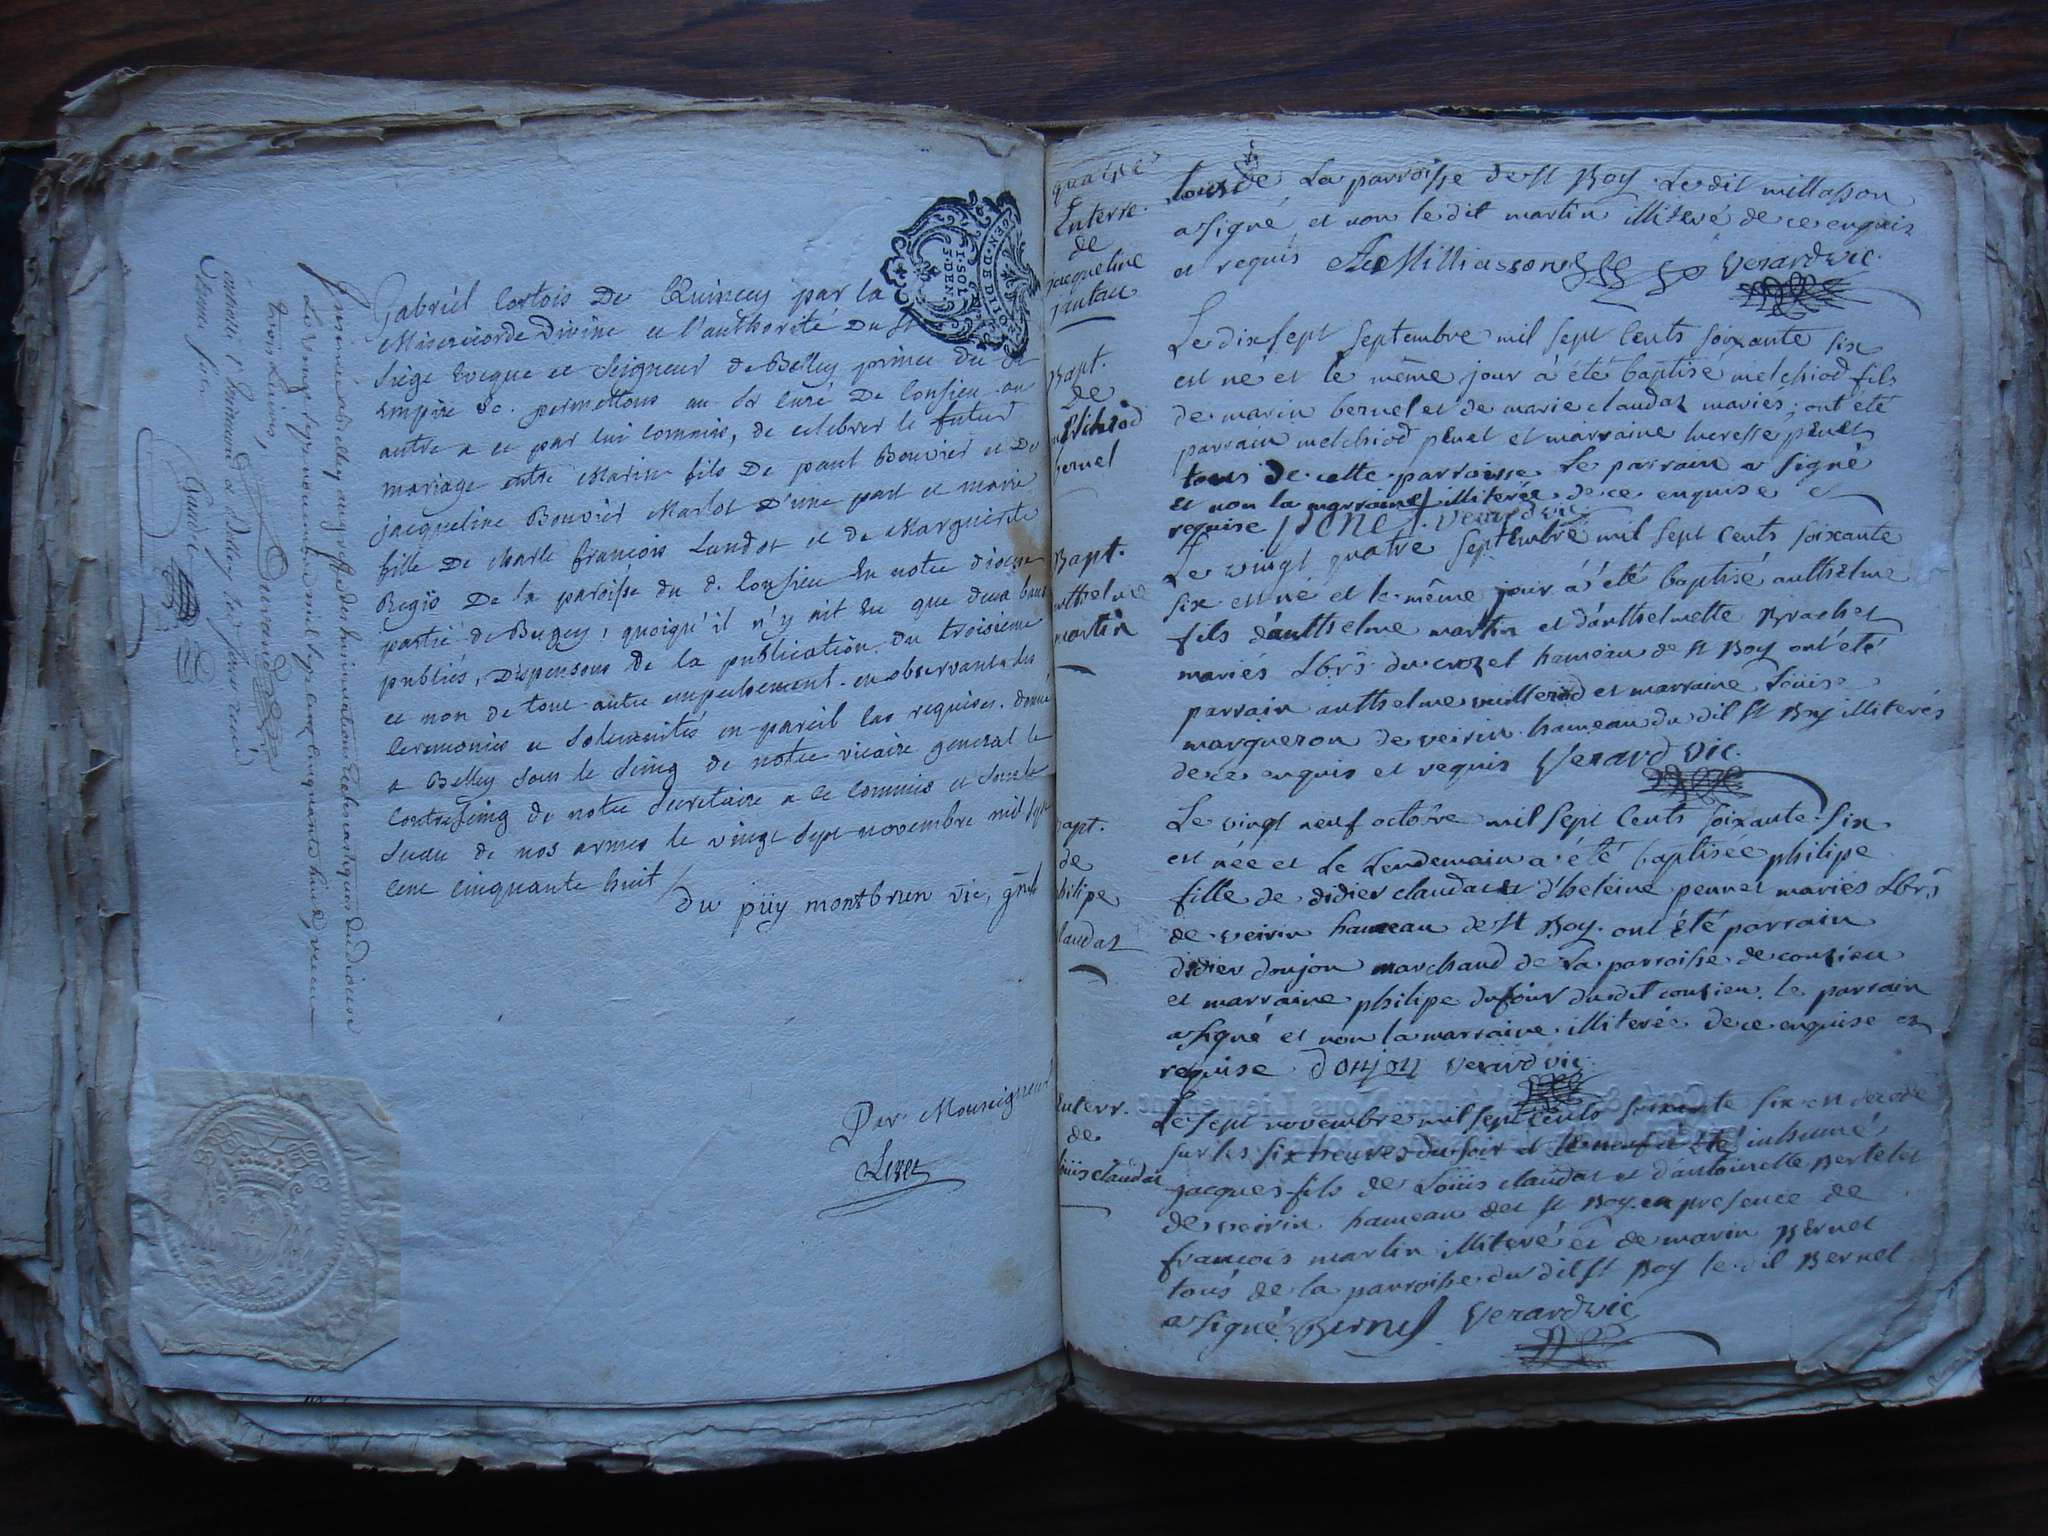 GEN. DE DIJON
1. SOL
5. DEN.
Gabriel Cortois De Quincey par la
Misericorde Divine et l'authorité Du St
Siège Eveque et Seigneur de Belley prince du St
Empire &c. permettons au Sr Curé De Consieu ou
autre a ce par lui commis, de celebrer le futur
mariage entre Marin fils De paul Bouvier et De
jacqueline Bouvier Marlot D'une part et marie
fille De Charle françois Landot et de Marguerite
Regis De la paroisse du d. Consieu En notre diocese
partie de Bugey, quoiqu'il n'y ait Eu que deux bans
publiés, Dispensons de la publication du troisieme
et non de tout autre empechement en observant les
Ceremonies et Solemnités en pareil cas requises. donné
a Belley sous le Seing de notre vicaire general le
Contreseing de notre Secretaire a ce commis et sous le
Sceau de nos armes le vingt sept novembre mil sept
cent cinquante huit /.
Du püy montbrun vic, gñal
Par Monseigneur
Livet
Insinué et Contrôllé au greffe des Insinuations Ecclesiastiques du diocese
Le vingt sept novembre mil sept cent cinquante huit, reçu
trois Livres,
Durand
quaise
Enterre.
de
jacqueline
jantau
tous de La parroisse de St Boy. Le dit millasson
a signé et non le dit martin illiteré de ce enquis
et requis Milliasson Verard vic.
Bapt.
de
Melchiod
bernel
Le dix sept septembre mil sept Cents soixante six
est né et le même jour à été baptisé melchiod fils
de marin bernel et de marie claudat mariés; ont été
parrain melchiod penet et marraine lucresse penet
tous de cette parroisse le parrain a signé
et non la marraine illiterée de ce enquise et
requise penet. verard vic
Bapt.
anthelme
martin
Le vingt quatre septembre mil sept Cents soixante
six est né et le même jour à été baptisé anthelme
fils d'anthelme martin et d'anthelmette Brachet
mariés Lbrs du crozet hameau de St Boy ont été
parrain anthelme millieriod et marraine Loüise
margueron de veirin hameau du dit St Boy illiterés
de ce enquis et requis Verard vic.
Bapt.
de
philipe
claudat
Le vingt neuf octobre mil sept Cents soixante six
est née et Le Lendemain a été baptisée philipe
fille de didier claudat et d'heleine pennet mariés Lbrs
de veirin hameau de St Boy. ont été parrain
didier donjon marchand de La parroisse de conzieu
et marraine philipe dufour dudit conzieu. le parrain
a signé et non la marraine illiterée de ce enquise et
requise. donjon verard vic.
Enterr.
de
loüis claudat
Le sept novembre mil sept Cents soixante six est decedé
sur les six heures du soir et le neuf a été inhumé
jacques fils de Loüis claudat et d'antoinette Bertelet
de veirin hameau de St Boy. en presence de
françois martin illiteré et de marin Bernel
tous de la parroisse du dit St Boy le dit Bernel
a signé Bernel Verard vic